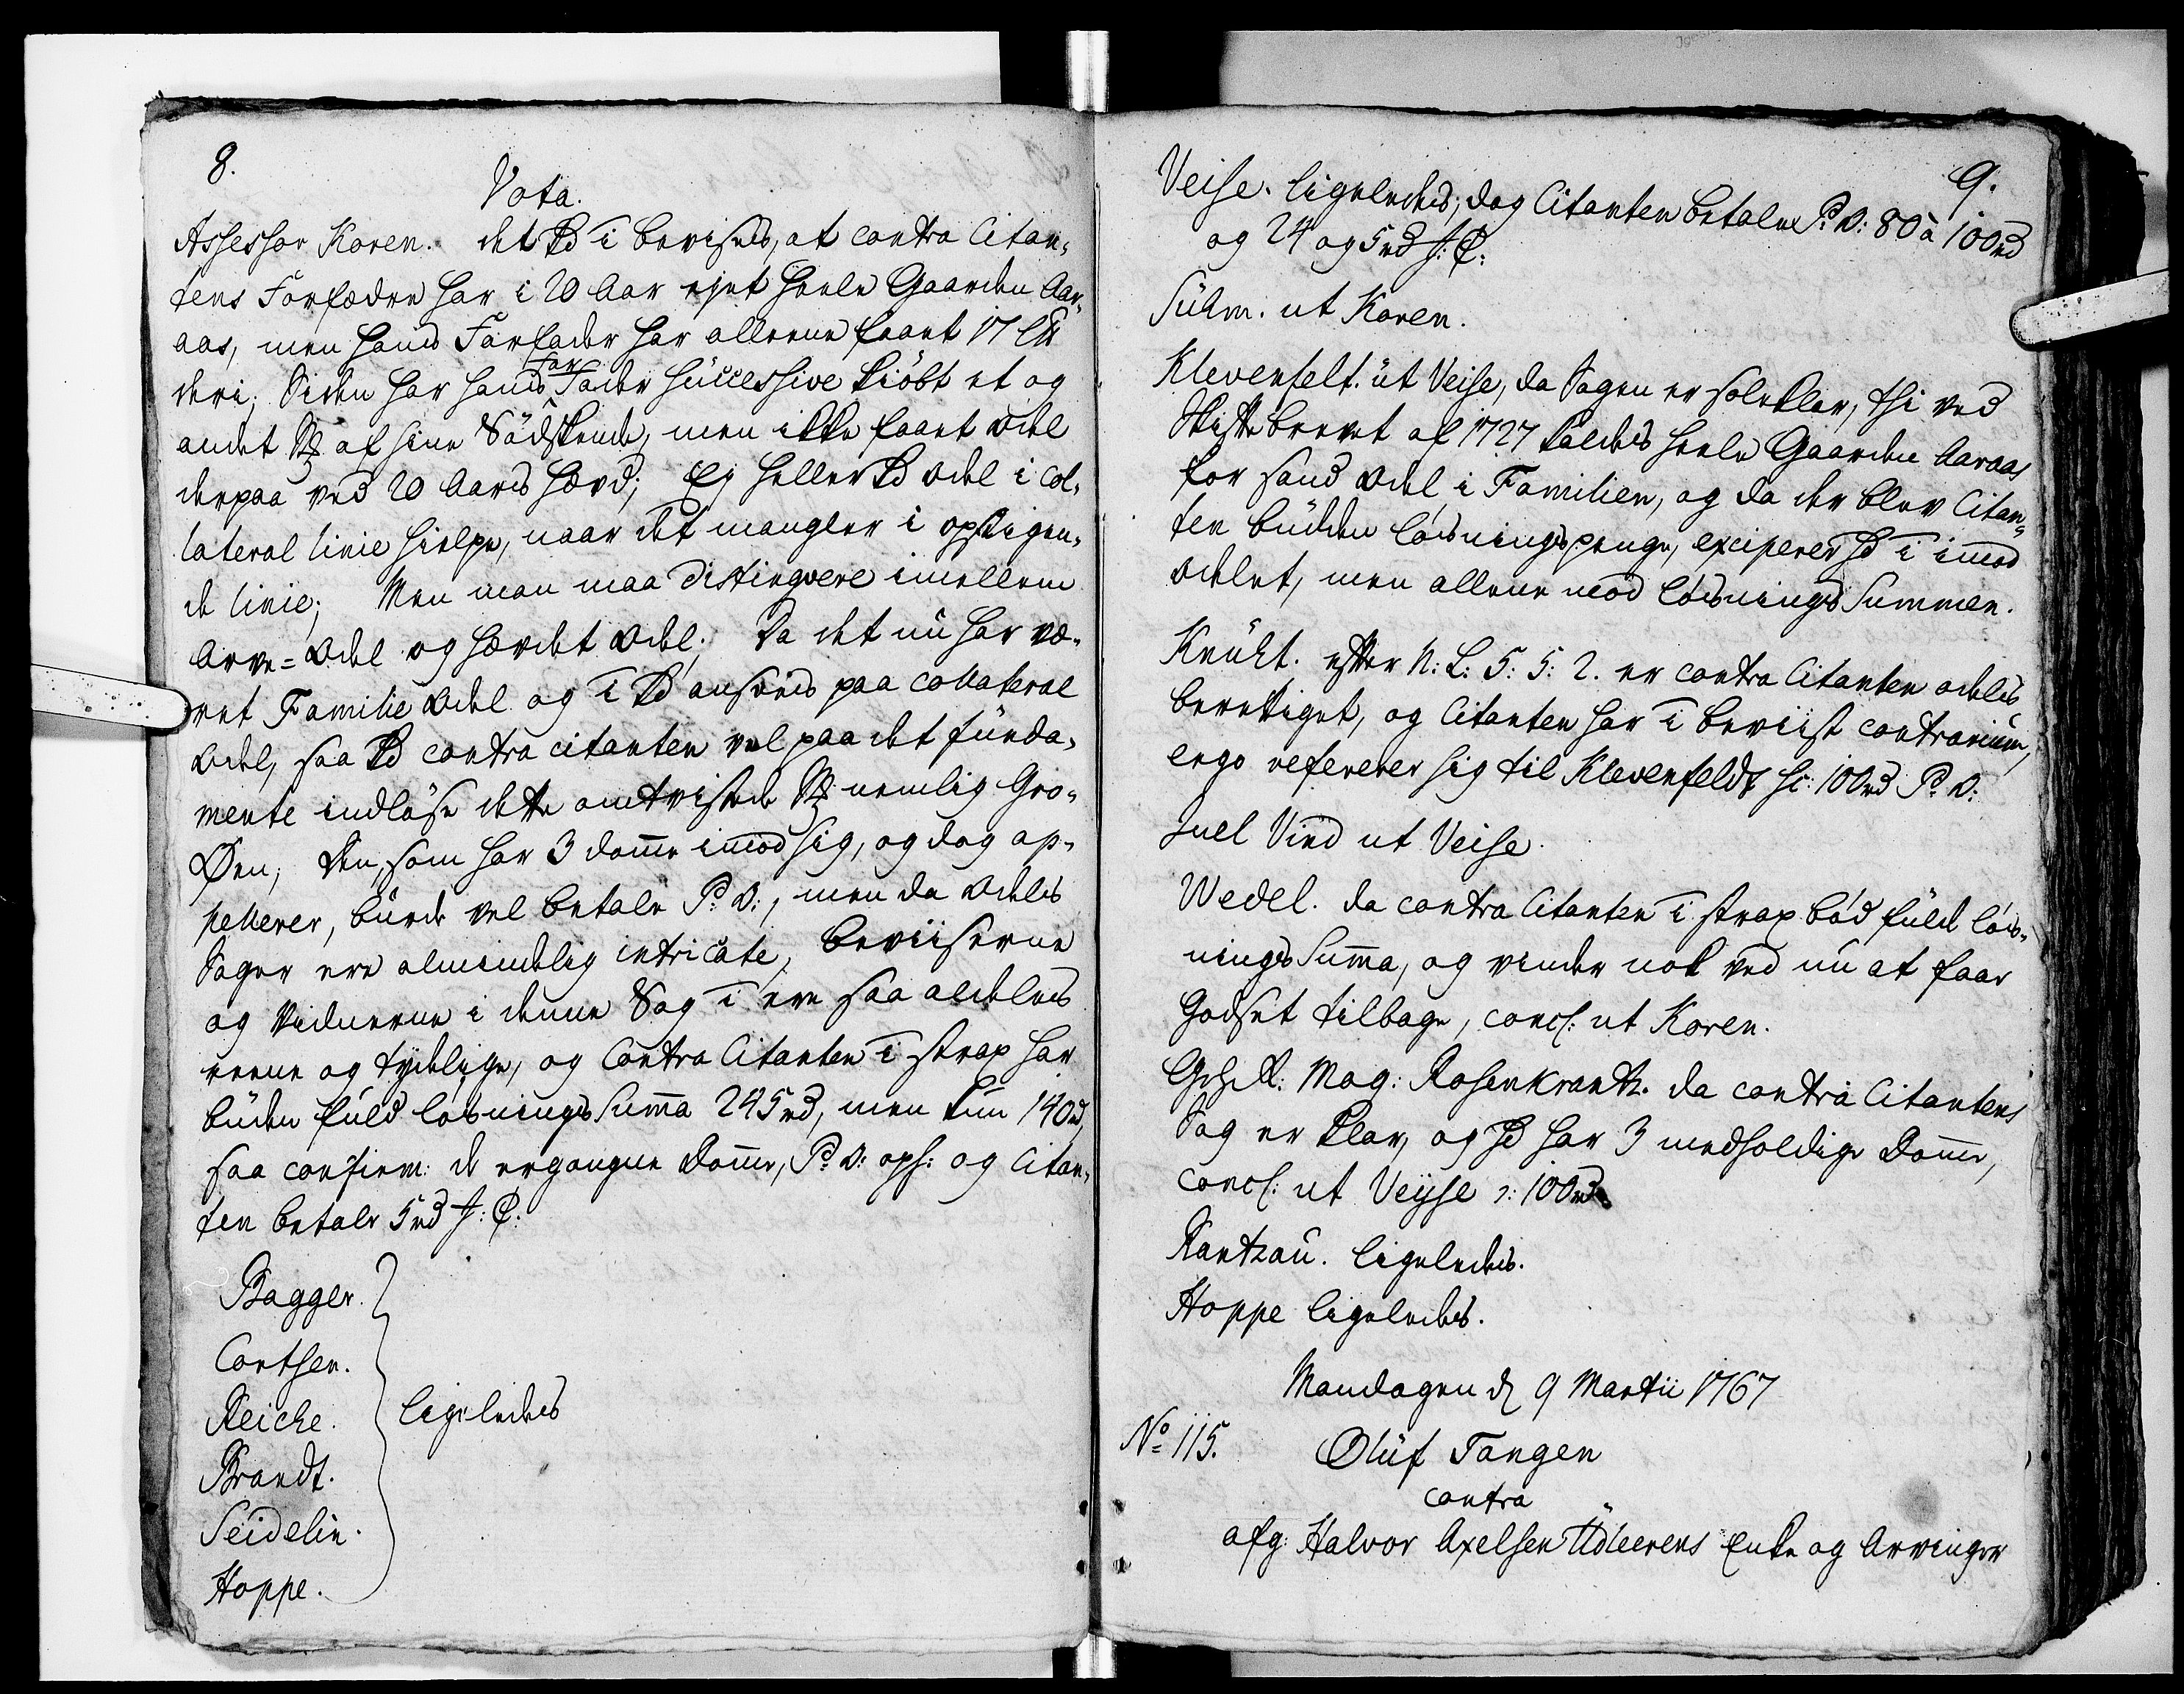 8.
Vota.
Assessor Koren. det kand i bevises, at contra Citan-
tens Forfædre har i 20 Aar ejet heele Gaarden Aar-
aas, men hans Farfader har alleene faaet 17
deri; Siden har hans Far Fader successive kiöbt et og
andet af sine Södskende, men ikke faaet odel
derpaa ved 20 Aars hævd; Ej heller odel i col-
lateral linie hielpe, naar det mangler i opstigen-
de linie; Men man maa distingvere imellem
Arve=Odel og hævdet Odel; Da det nu har væ-
ret Familie Odel og i ansees paa collateral
Odel, saa contra citanten vel paa det funda-
mente indløse dette omtvistede nemlig Gro-
Øen, den, som har 3 domme imod sig, og dog ap-
pellerer, burde vel betale P: D:, men da Odels
Sager ere almindelig intricate, beviiserne
og Vidnerne i denne Sag i ere saa aldeles
reene og tydelige, og Contra Citanten i strax har
buden fuld løsnings Summa 245 rd, men kun 140 rd,
saa confirm: de ergangne Domme, P: D: oph: og Citan-
ten betaler 5 rd J: C:
Bagger.
Cortsen.
Reiche. ligeledes
Brandt.
Seidelin.
Hoppe.
9.
Veise. ligeledes; dog Citanten betaler P: D: 80 à 100 rd
og 24 og 5 rd J: C:
Suhm. ut Koren.
Klevenfelt. ut Veise, da Sagen er soleklar, thi ved
Skiftebrevet af 1727 kaldes heele Gaarden Aaraas
for sand Odel i Familien, og da der blev Citan-
ten budden løsningspenge, exciperer hand i imod
odelet, men alleene mod løsnings Summen.
Knuht. efter N: L: 5: 5: 2. er contra Citanten odels
berettiget, og Citanten har i beviist contrarium,
ergo refererer sig til Klevenfeldt sc: 100 rd P: D:
Juel Vind ut Veise.
Wedel. da contra Citanten i strax bød fuld løs-
nings Summa, og vinder nok ved nu at faae
Godset tilbage, concl: ut Koren.
Geh: R: Mag: Rosenkrantz. da contra Citantens
Sag er klar, og hand har 3 medholdige Domme,
concl: ut Veyse : 100 rd
Rantzau. ligeledes.
Hoppe ligeledes.
Mandagen d. 9 Martii 1767
No 115. Oluf Tangen
contra
afg: Halvor Axelsen Udleerens Enke og Arvinger